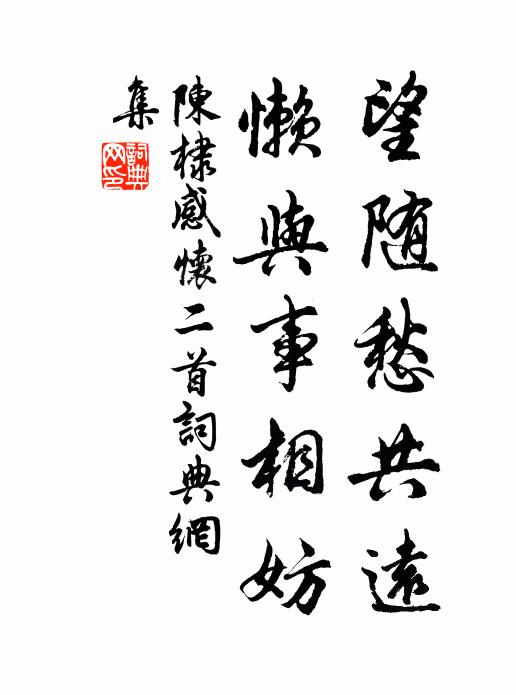 望随愁共遠
懶與事相妨
陳棣感懷二首詞典網
集
詞典
网印